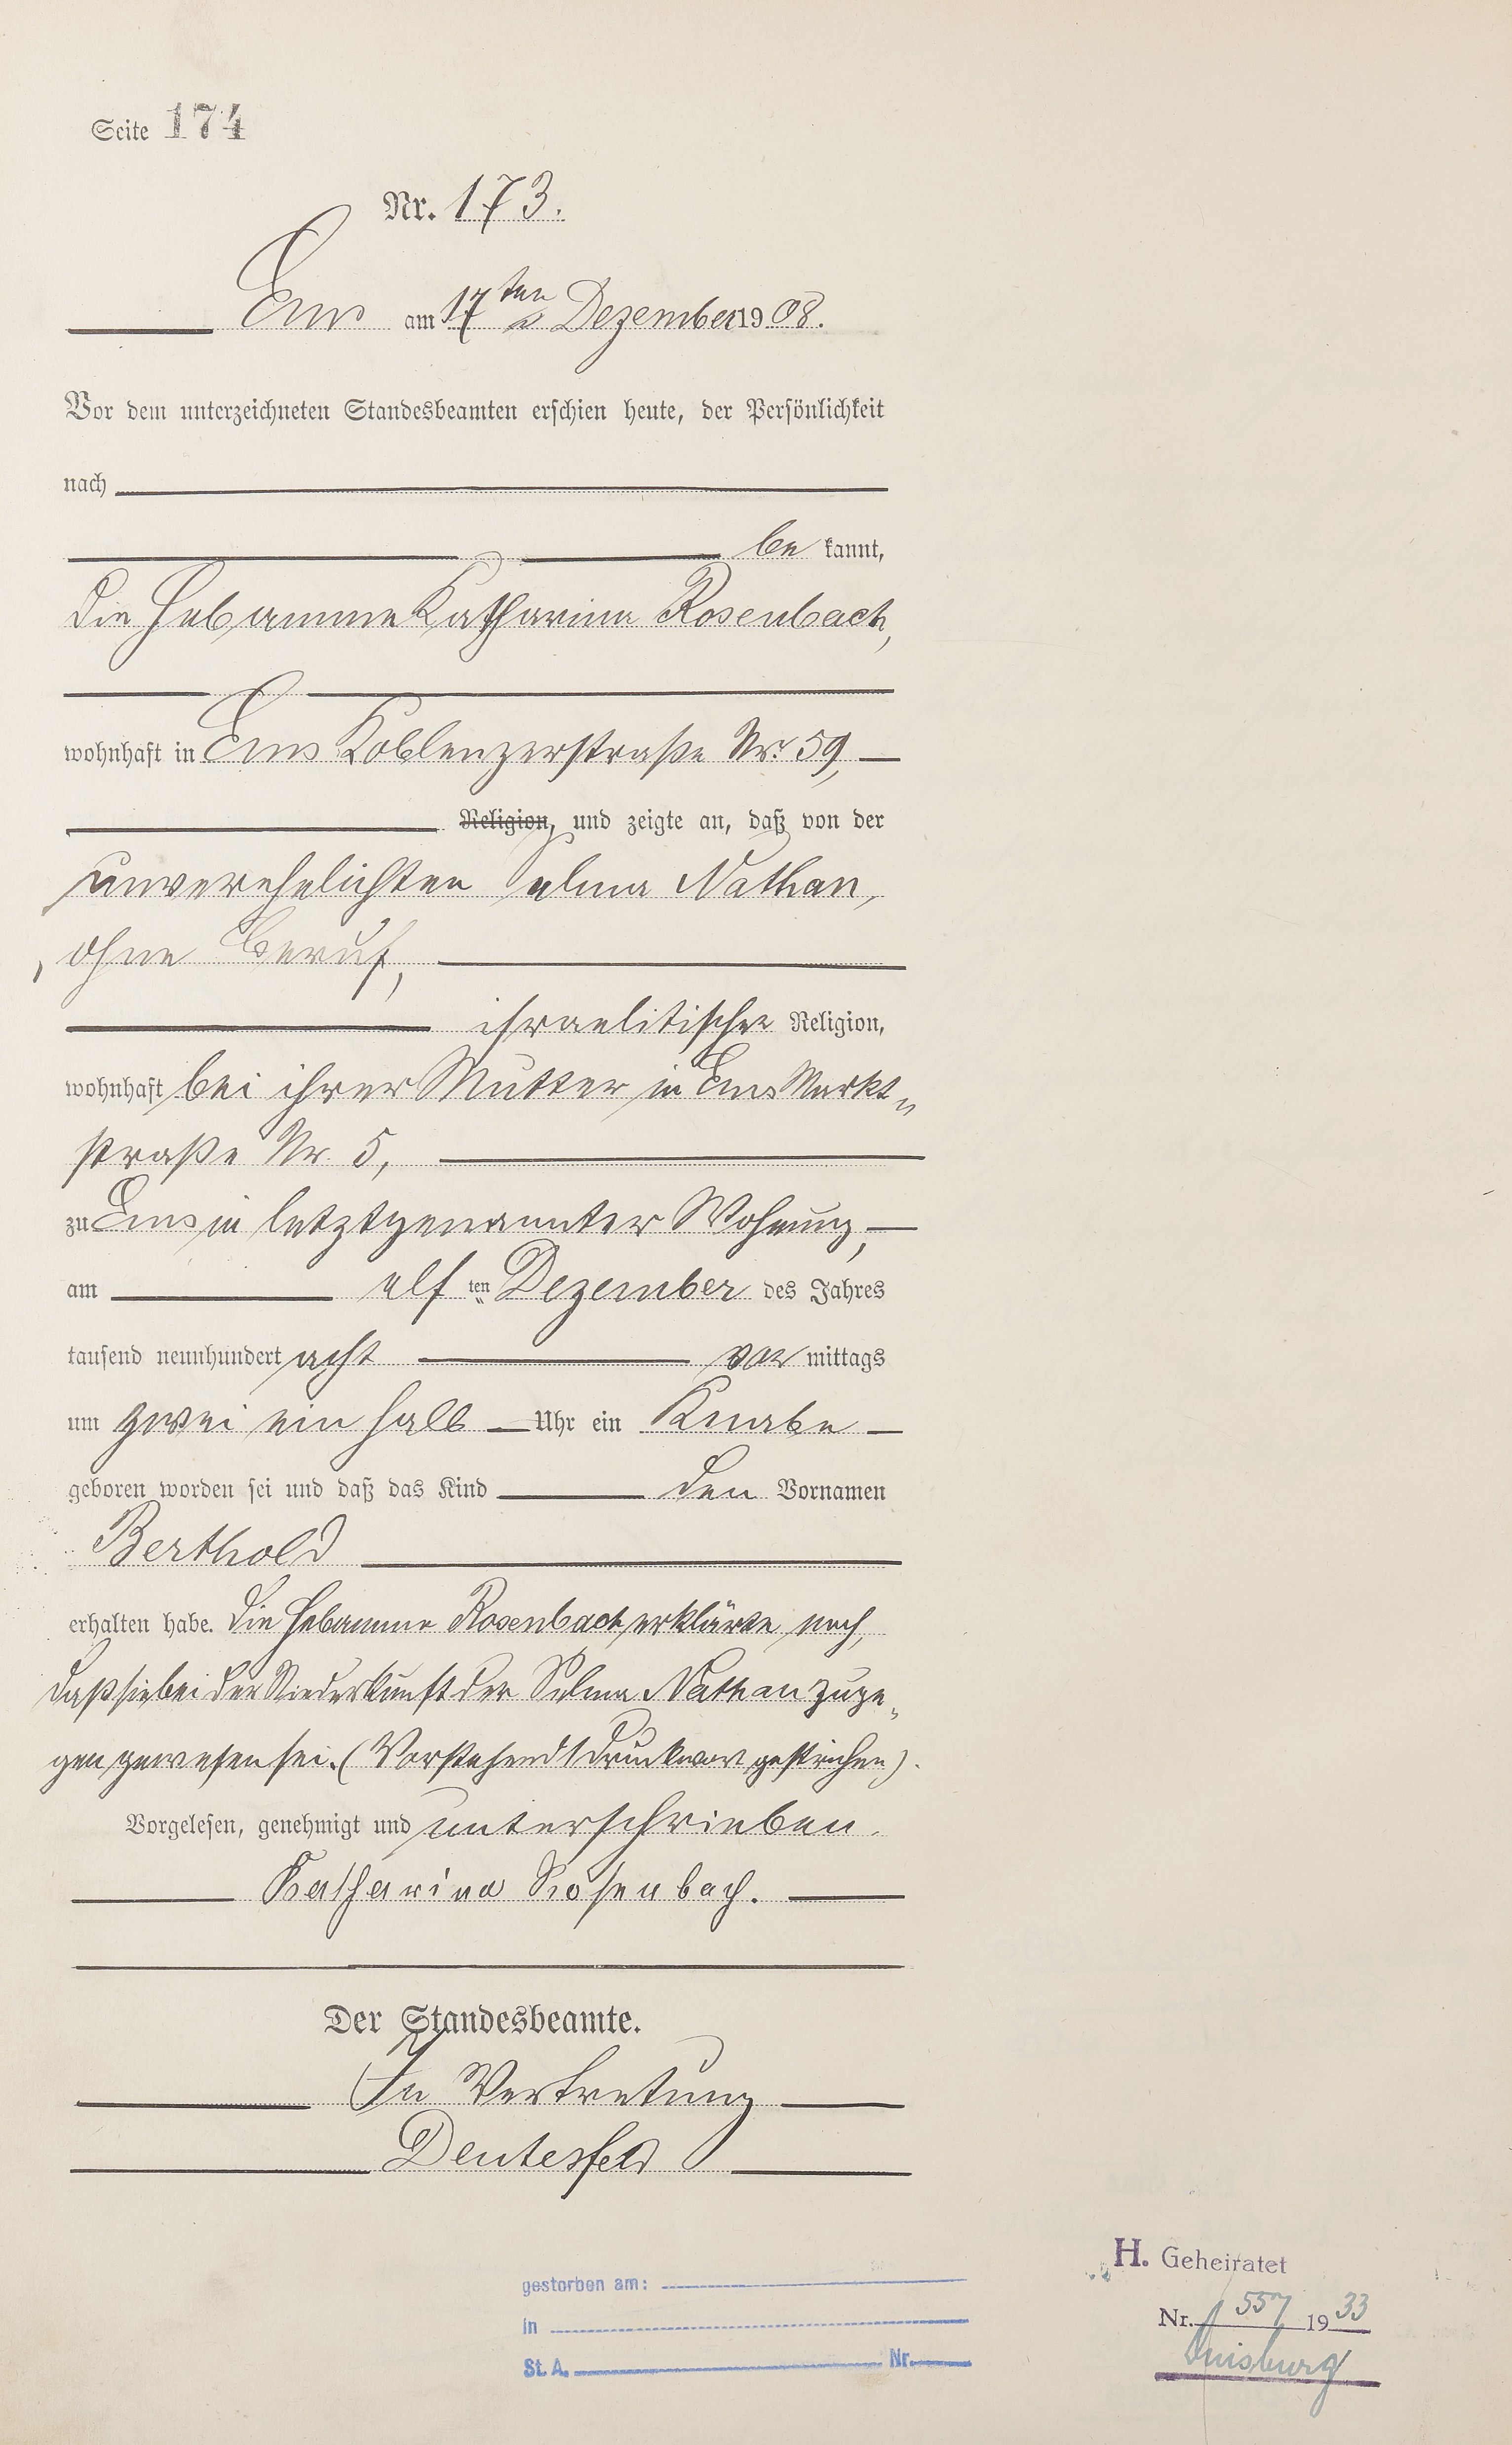 Seite 174
Nr. 173.
Ems am 17ten Dezember 1908.
Vor dem unterzeichneten Standesbeamten erschien heute, der Persönlichkeit
nach
be kannt,
die Hebamme Katharina Rosenbach,
wohnhaft in Ems Koblenzerstraße Nr. 59,
Religion, und zeigte an, daß von der
unverehelichten Selma Nathan,
ohne Beruf,
israelitischer Religion,
wohnhaft bei ihrer Mutter in Ems Markt„
straße Nr. 5,
zu Ems in letztgenannter Wohnung,
am elf ten Dezember des Jahres
tausend neunhundert acht vor mittags
um zwei ein halb Uhr ein Knabe
geboren worden sei und daß das Kind den Vornamen
Berthold
erhalten habe. Die Hebamme Rosenbach erklärte noch,
daß sie bei der Niederkunft der Selma Nathan zuge„
gen gewesen sei. (Vorstehend 1 Druckwort gestrichen).
Vorgelesen, genehmigt und unterschrieben.
Katharina Rosenbach.
Der Standesbeamte.
In Vertretung
Deutesfeld
gestorben am:
in
St. A. Nr.
H. Geheiratet
Nr. 557 1933
Duisburg